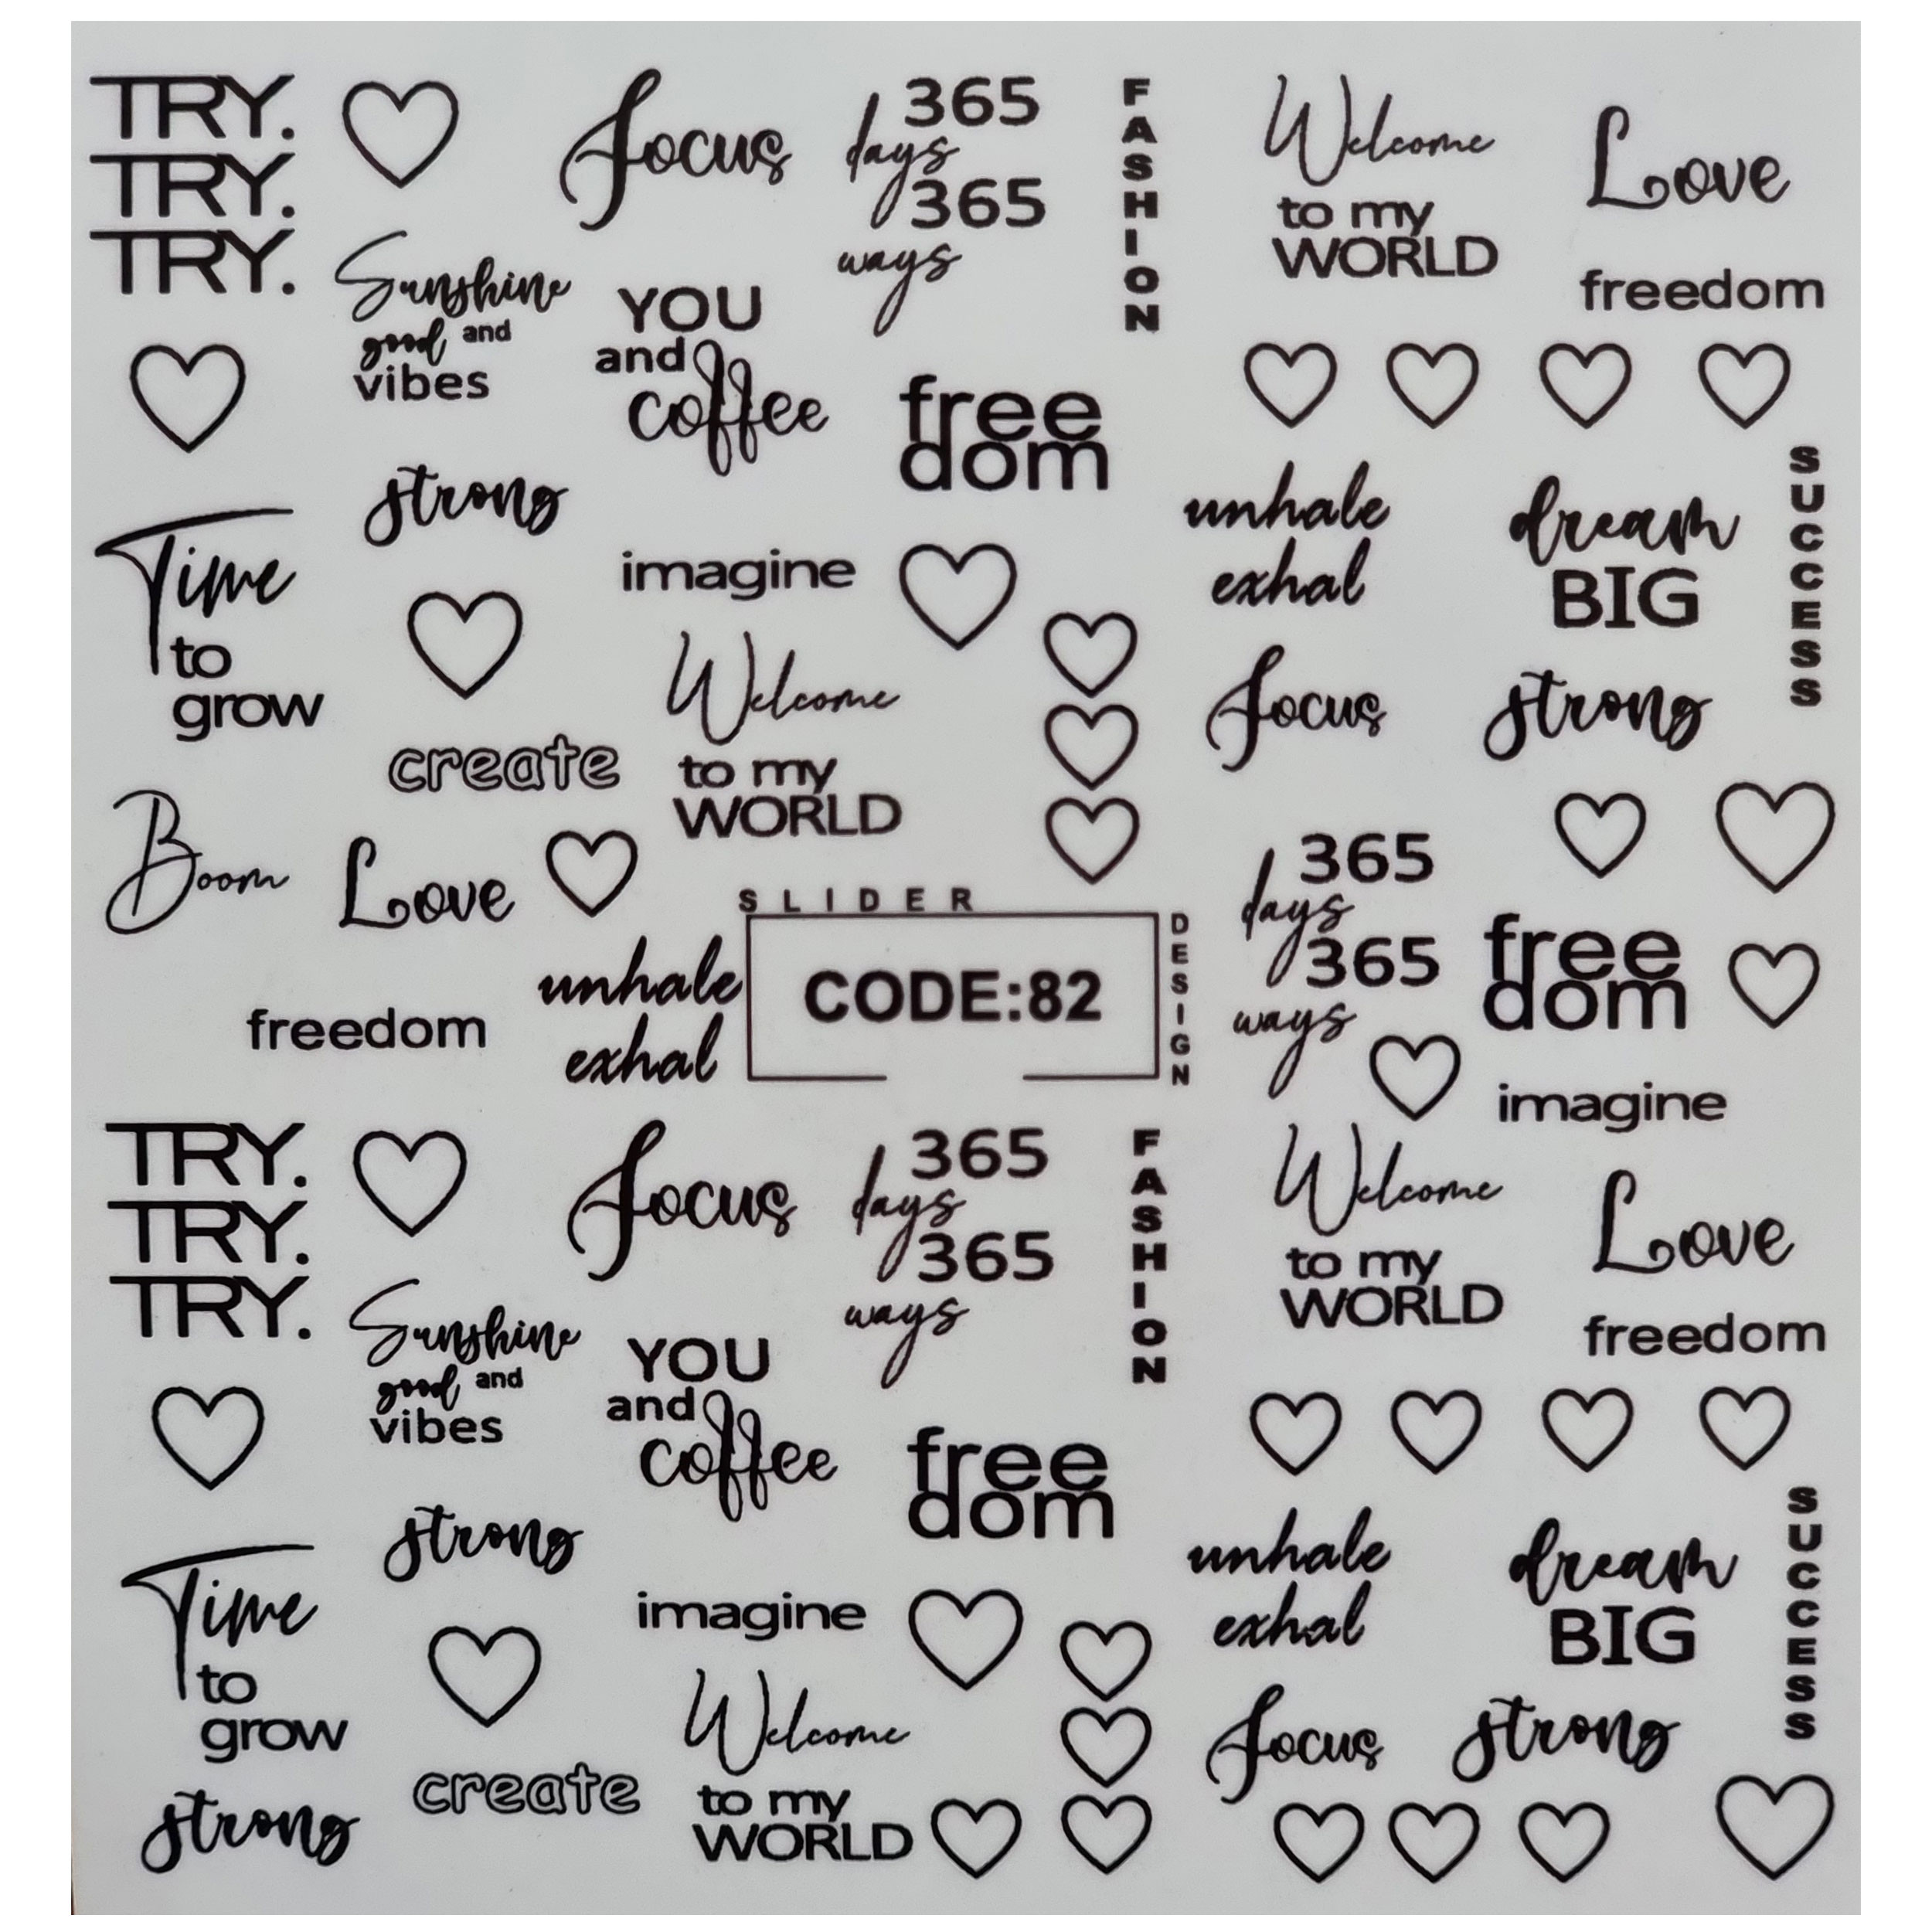 TRY.
TRY.
TRY.
focus
365
days
365
ways
FASHION
Welcome
to my
WORLD
Love
freedom
Sunshine
good and
vibes
YOU
and
coffee
free
dom
strong
unhale
exhal
dream
BIG
SUCCESS
Time
to
grow
imagine
Welcome
to my
WORLD
focus
strong
create
Boom
Love
365
days
365
ways
free
dom
freedom
unhale
exhal
SLIDER
CODE:82
DESIGN
imagine
TRY.
TRY.
TRY.
focus
365
days
365
ways
FASHION
Welcome
to my
WORLD
Love
freedom
Sunshine
good and
vibes
YOU
and
coffee
free
dom
strong
unhale
exhal
dream
BIG
SUCCESS
Time
to
grow
imagine
Welcome
to my
WORLD
focus
strong
create
strong